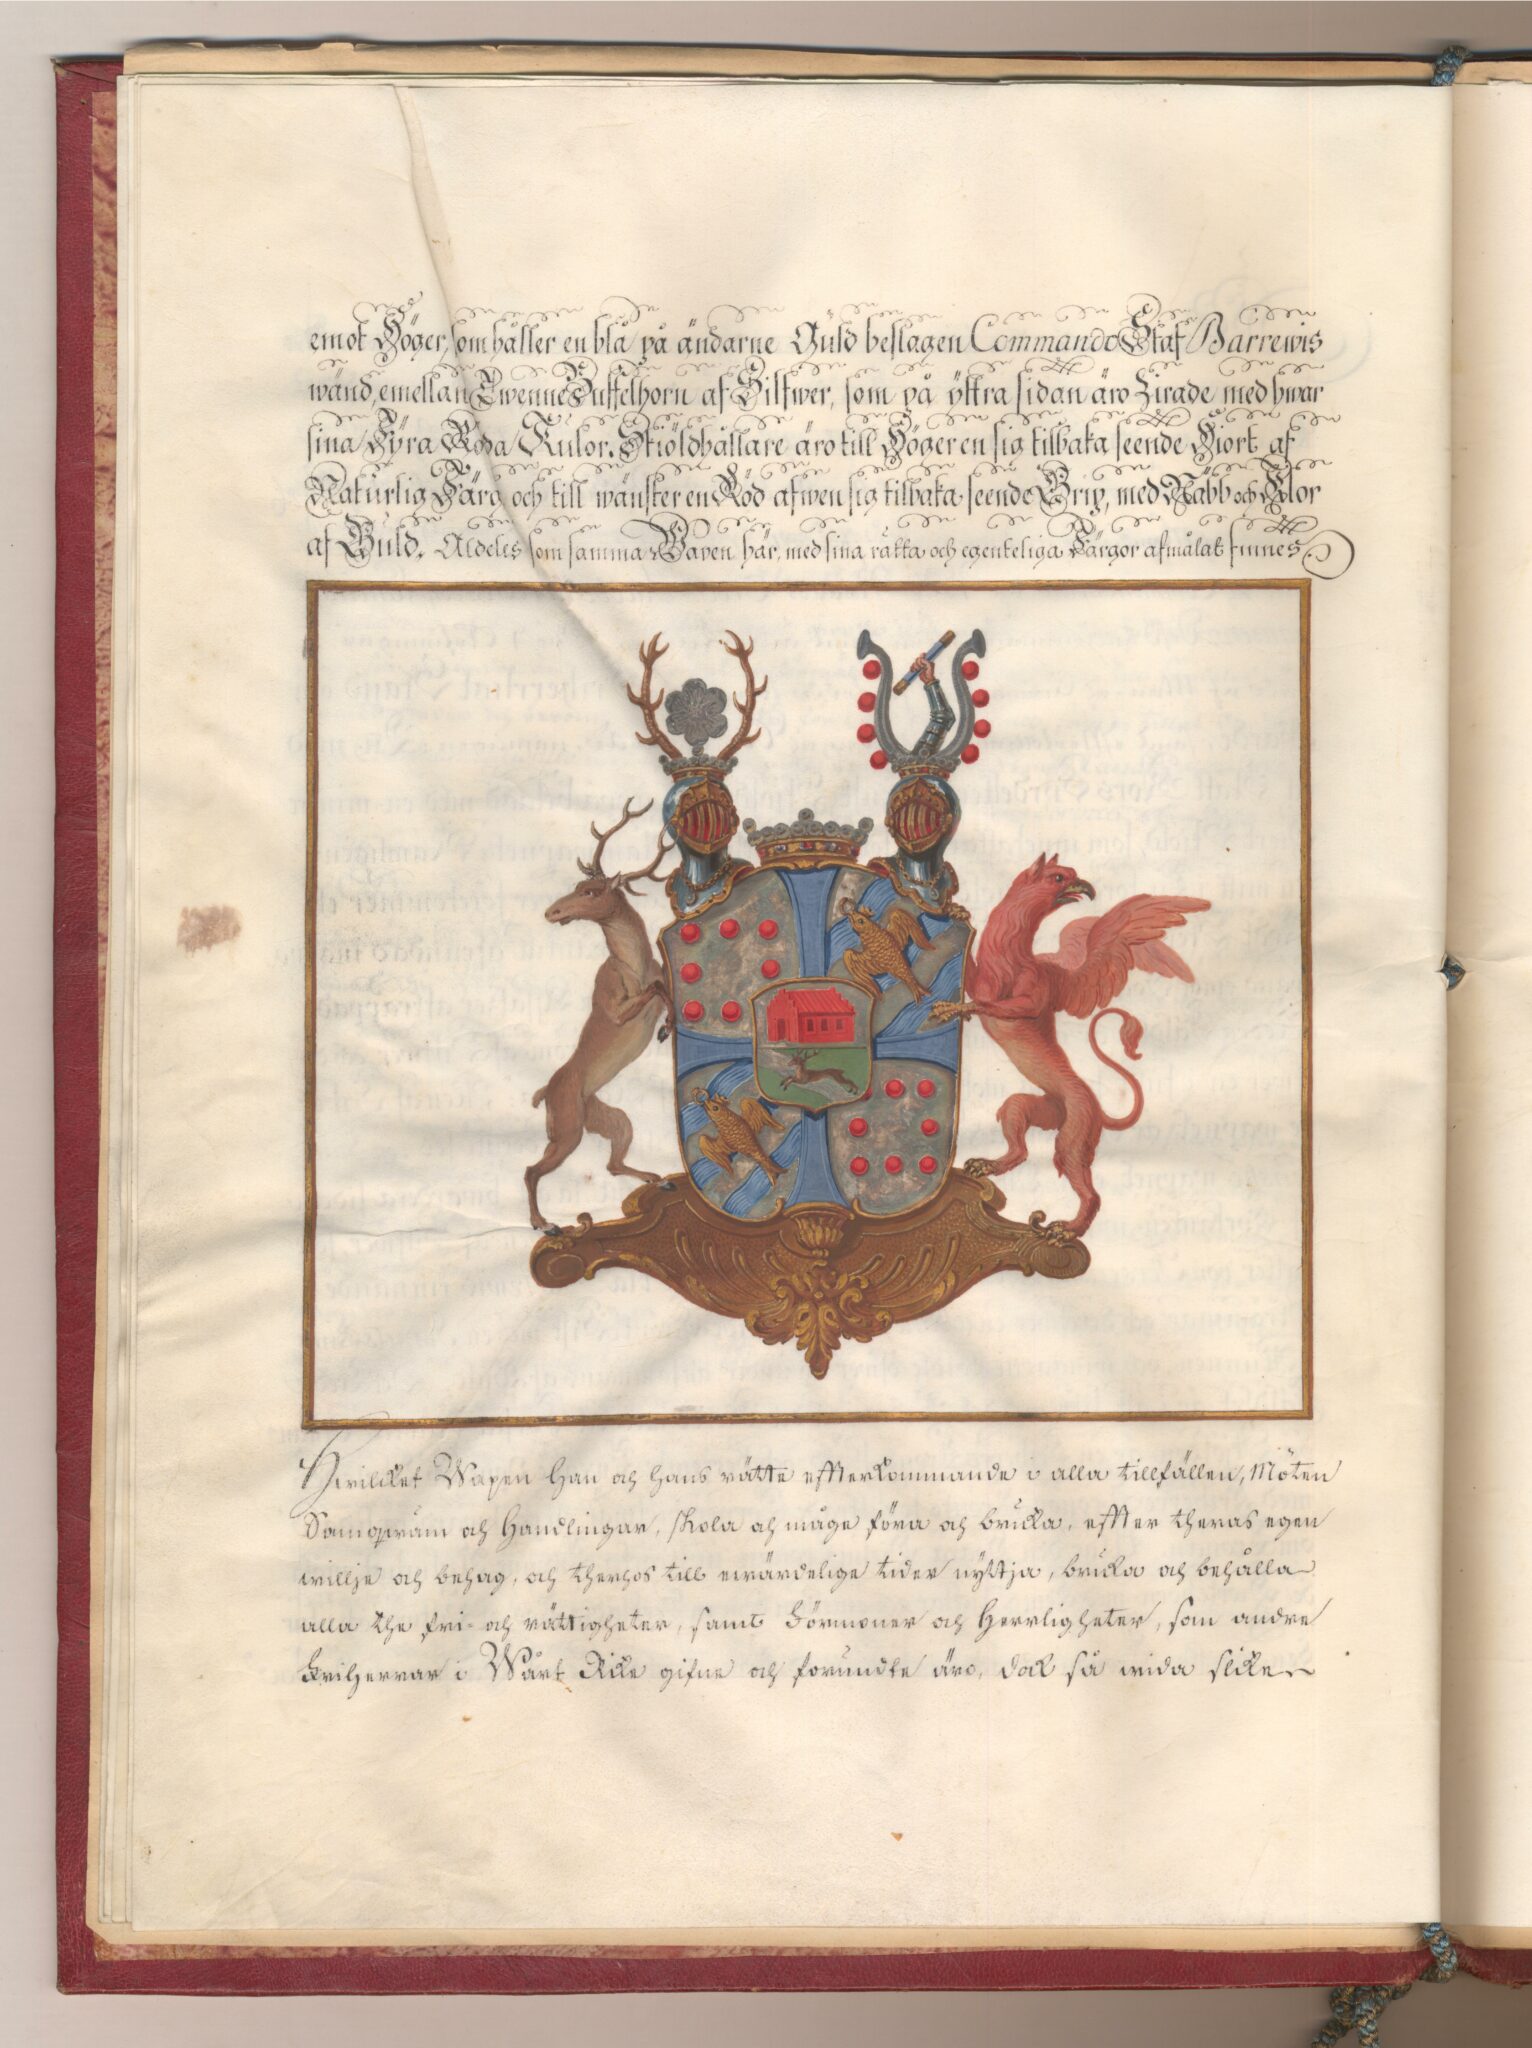 emot Höger, som håller en blå på ändarne Guld beslagen Commando Staf Barrewis
wänd, emellan Twenne Buffelhorn af Silfwer, som på yttra sidan äro Zirade med hwar
sina Fÿra Röda Kulor. Skiöldhållare äro till Höger en sig tilbaka seende Hiort af
Naturlig Färg och till wänster en Röd afwen sig tilbaka seende Grip, med Näbb och Klor
af Guld. Aldeles som samma Wapen här, med sina rätta och egenteliga Färgor afmålat finnes
Hwilcket Wapen han och hans rätte effterkommande i alla tillfällen, Möten
Samqwäm och Handlingar, skola och måge föra och bruka, effter theras egen
willje och behag, och therhos till ewärdelige tider nyttja, bruka och behålla
alla the fri- och rättigheter, samt Förmoner och Herrligheter, som andre
Friherrar i Wårt Rike gifne och forundte äro, dock så wida slike